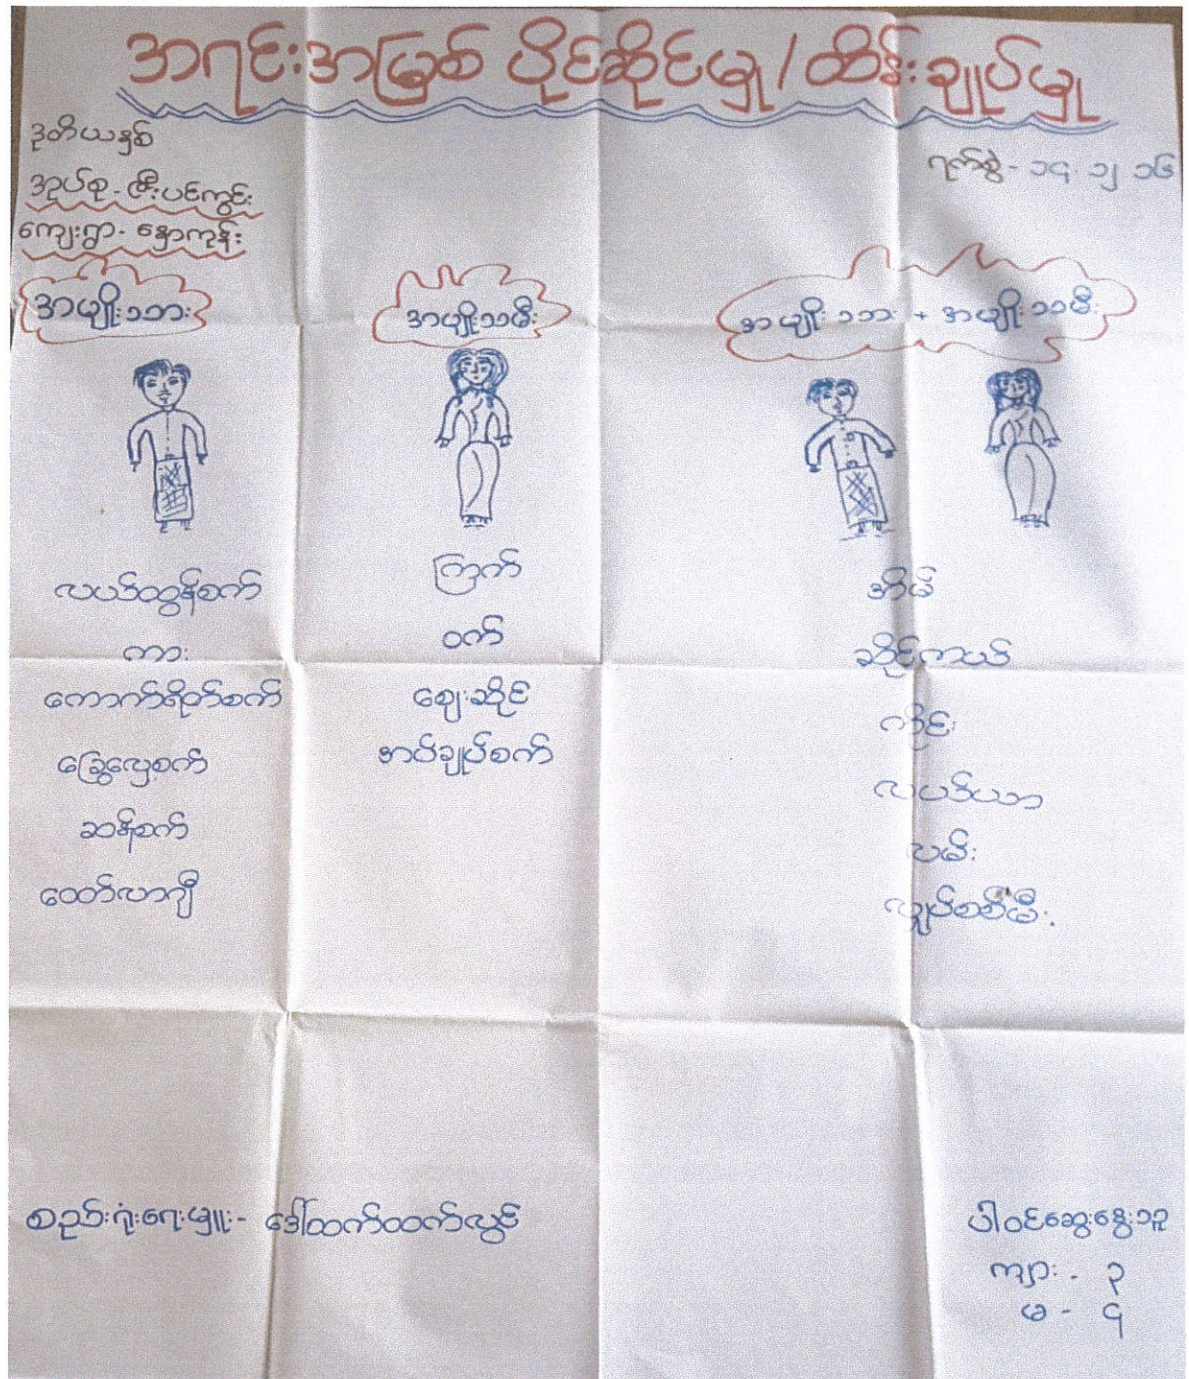 အရင်းအမြစ် ပိုင်ဆိုင်မှု / ထိန်းချုပ်မှု
ဒုတိယနှစ်
အုပ်စု - ဇီးပင်ကွင်း
ကျေးရွာ - နှောကုန်း
ရက်စွဲ - ၁၄. ၁၂. ၁၆
အမျိုးသား
အမျိုးသမီး
အမျိုးသား + အမျိုးသမီး
လယ်ထွန်စက်
ကား
ကောက်ရိတ်စက်
ခြွေလှေ့စက်
ဆန်စက်
ထော်လာဂျီ
ကြက်
ဝက်
ဈေးဆိုင်
အပ်ချုပ်စက်
အိမ်
ဆိုင်ကယ်
ကိုင်း
လယ်ယာ
လမ်း
လျှပ်စစ်မီး
စည်းရုံးရေးမှူး - ဒေါ်ထက်ထက်လွင်
ပါဝင်ဆွေးနွေးသူ
ကျား - ၃
မ - ၄